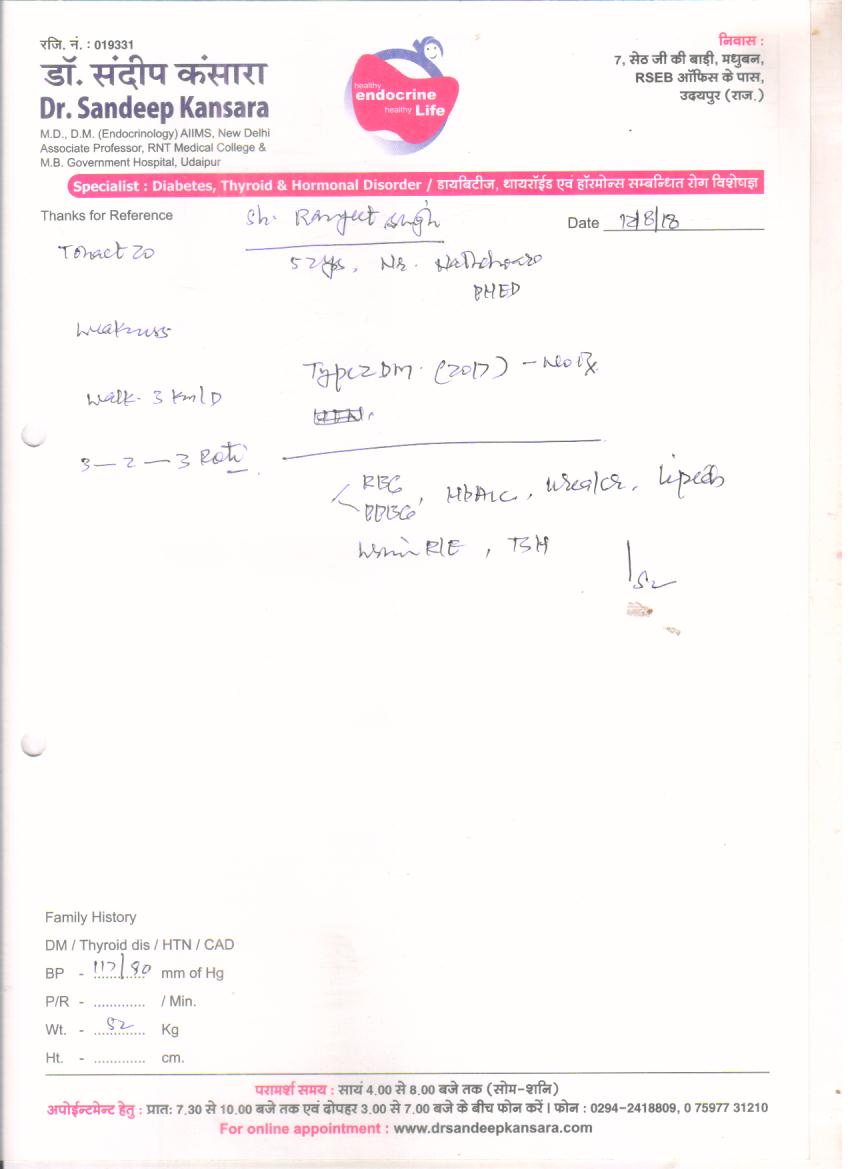 रजि. नं. : 019331
डॉ. संदीप कंसारा
Dr. Sandeep Kansara
M.D., D.M. (Endocrinology) AIIMS, New Delhi
Associate Professor, RNT Medical College &
M.B. Government Hospital, Udaipur
healthy
endocrine
healthy Life
निवास :
7, सेठ जी की बाड़ी, मधुबन,
RSEB ऑफिस के पास,
उदयपुर (राज.)
Specialist : Diabetes, Thyroid & Hormonal Disorder / डायबिटीज, थायरॉईड एवं हॉरमोन्स सम्बन्धित रोग विशेषज्ञ
Thanks for Reference
Sh. Ranjeet Singh
Date 12/8/18
Tonact 20
52 yrs,
PHED
Weakness
Type 2 DM. (2017) - No Rx.
Walk - 3 Km/D
3 — 2 — 3 Roti
PPBG, HbA1c, Urea/Cr, Lipids
Urine R/E, TSH
Family History
DM / Thyroid dis / HTN / CAD
BP - 117/80 mm of Hg
P/R - ............. / Min.
Wt. - 52 Kg
Ht. - ............. cm.
परामर्श समय : सायं 4.00 से 8.00 बजे तक (सोम-शनि)
अपोईन्टमेन्ट हेतु : प्रात: 7.30 से 10.00 बजे तक एवं दोपहर 3.00 से 7.00 बजे के बीच फोन करें। फोन : 0294-2418809, 0 75977 31210
For online appointment : www.drsandeepkansara.com